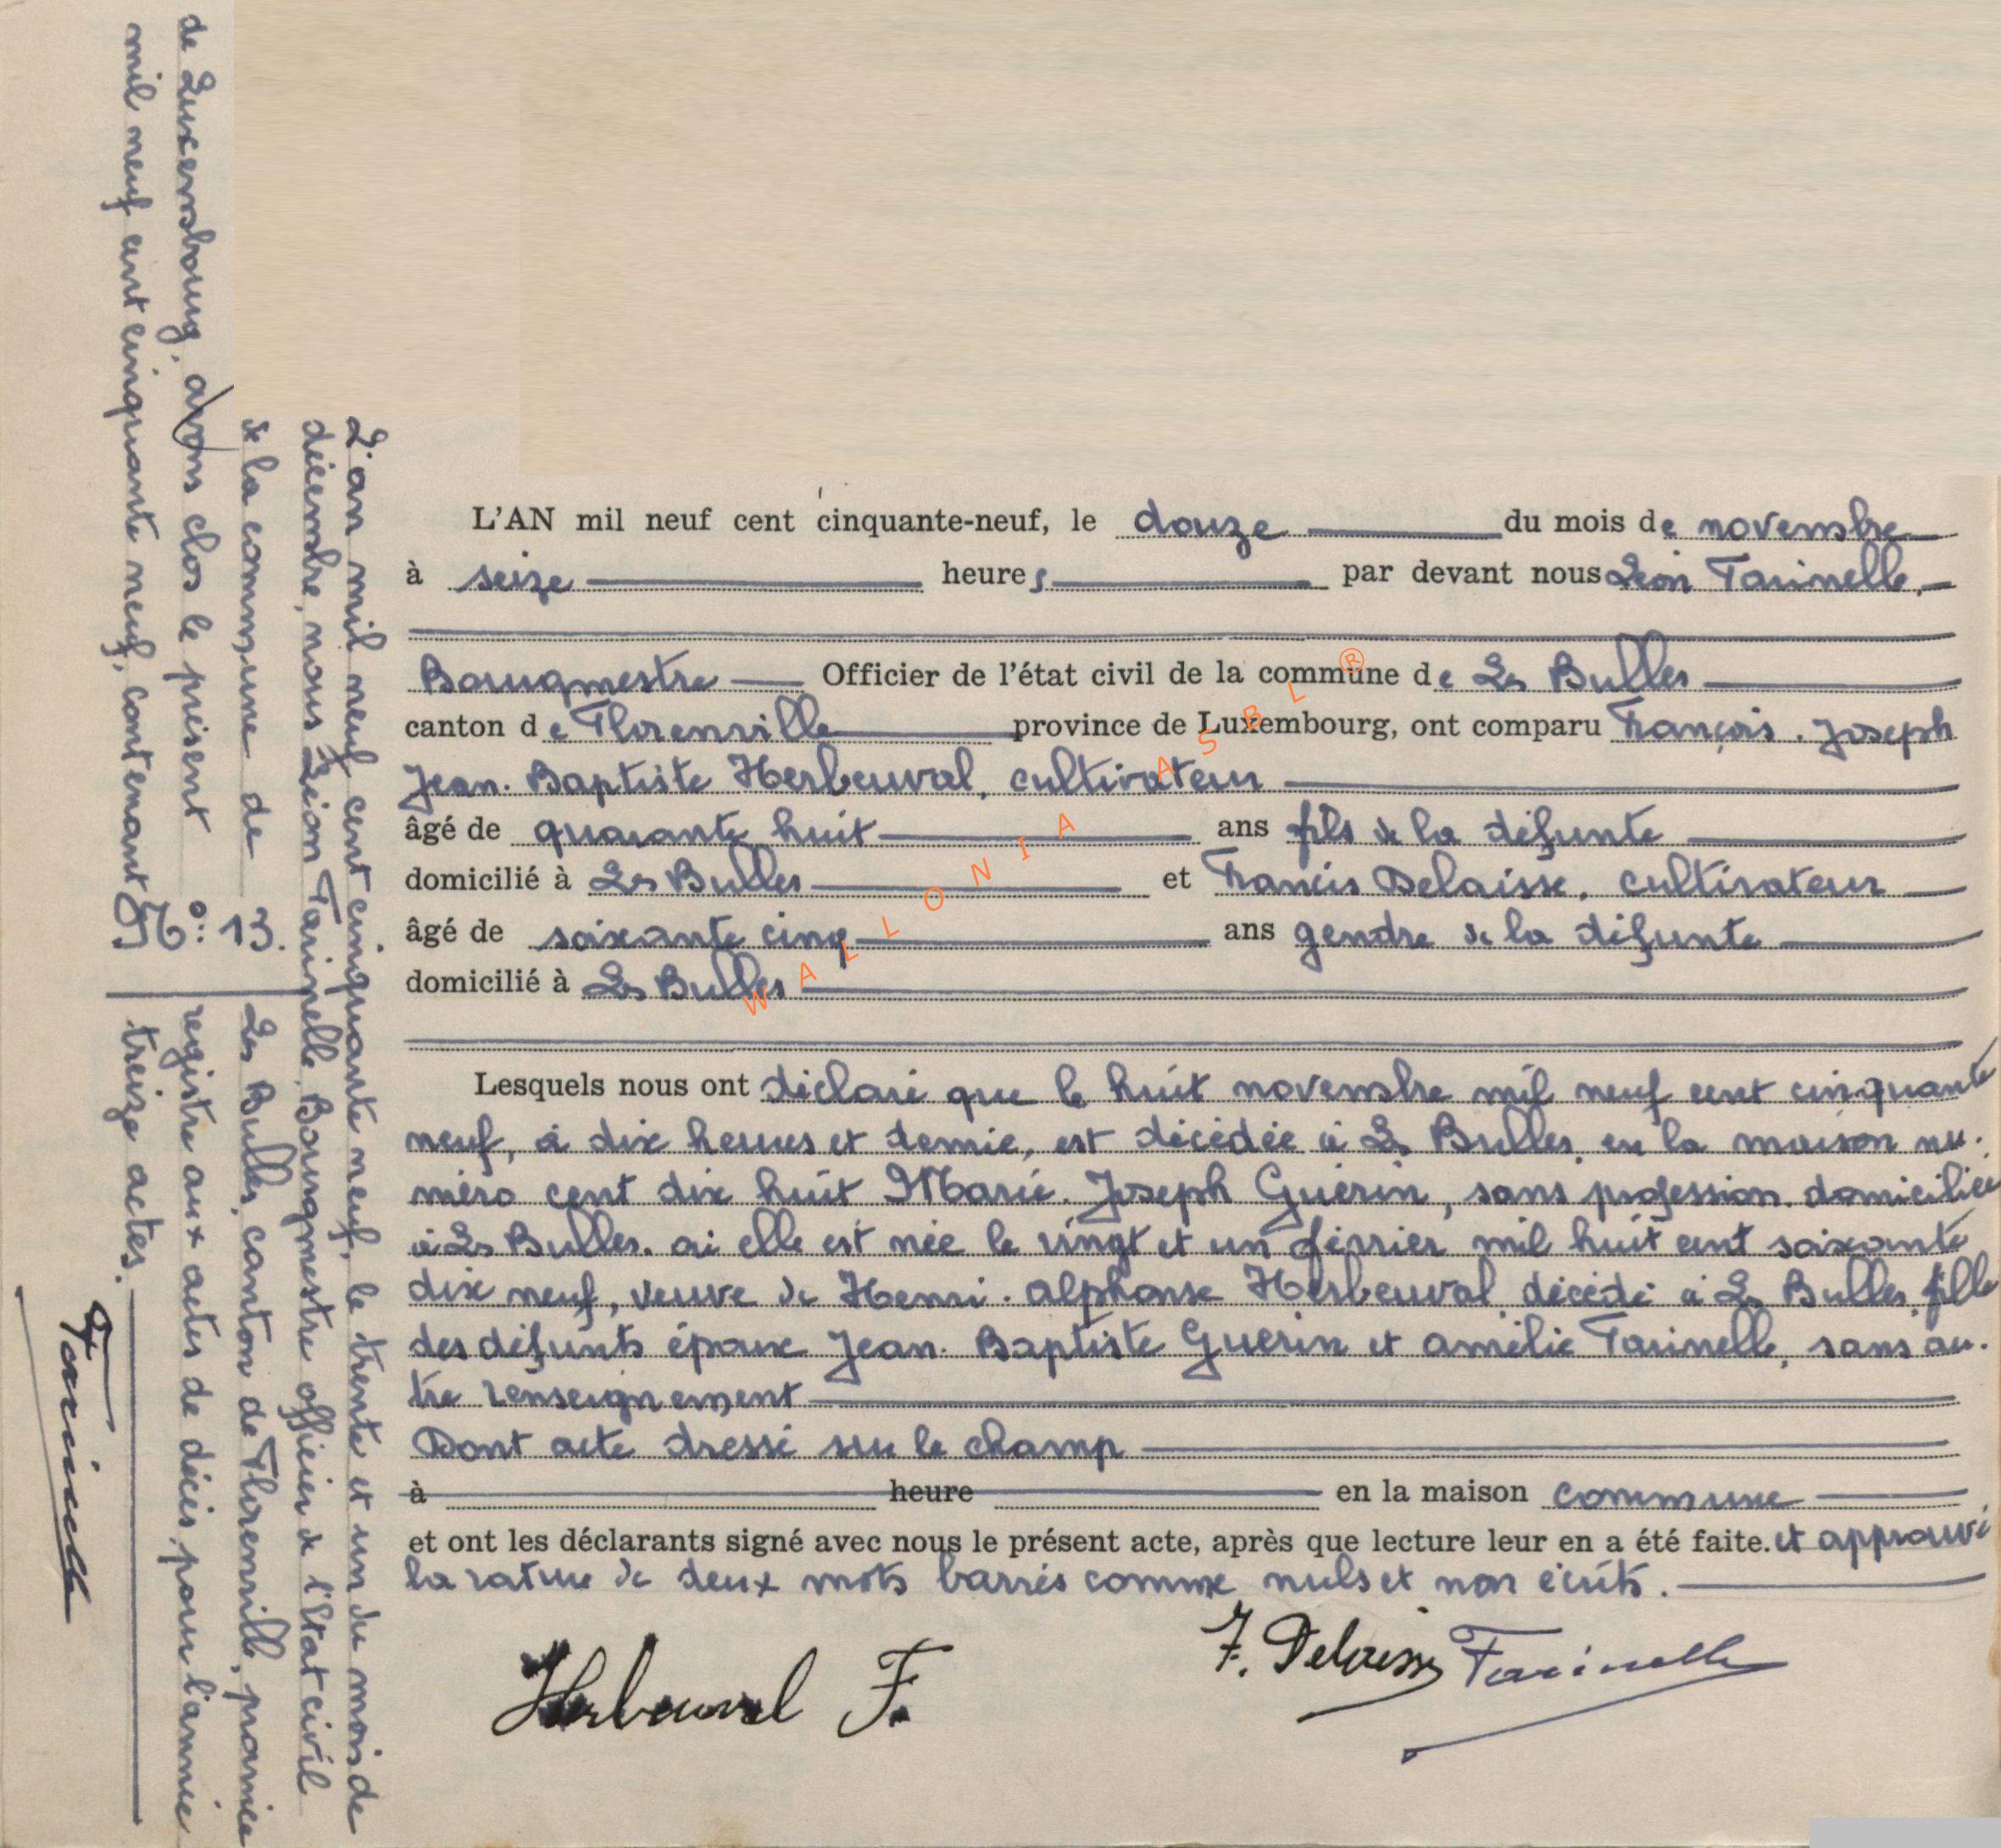 L'an mil neuf cent cinquante neuf, le trente et un du mois de
décembre, nous Léon Farinelle, Bourgmestre officier de l'état civil
de la commune de Les Bulles, canton de Florenville, province
de Luxembourg, avons clos le présent registre aux actes de décès, pour l'année
mil neuf cent cinquante neuf, contenant treize actes.
Farinelle
No: 13.
L'AN mil neuf cent cinquante-neuf, le douze du mois de novembre
à seize heures par devant nous Léon Farinelle,
Bourgmestre Officier de l'état civil de la commune de Les Bulles
canton de Florenville province de Luxembourg, ont comparu François. Joseph
Jean. Baptiste Herbeuval, cultivateur
âgé de quarante huit ans fils de la défunte
domicilié à Les Bulles et Francis Delaisse, cultivateur
âgé de soixante cinq ans gendre de la défunte
domicilié à Les Bulles
Lesquels nous ont déclaré que le huit novembre mil neuf cent cinquante
neuf, à dix heures et demie, est décédée à Les Bulles, en la maison nu.
méro cent dix huit Marie. Joseph Guérin, sans profession. domiciliée
à Les Bulles. où elle est née le vingt et un février mil huit cent soixante
dix neuf, veuve de Henri. Alphonse Herbeuval décédé à Les Bulles, fille
des défunts époux Jean. Baptiste Guérin et Amélie Farinelle, sans au.
tre renseignement
Dont acte dressé sur le champ
à heure en la maison commune
et ont les déclarants signé avec nous le présent acte, après que lecture leur en a été faite. et approuvé
la rature de deux mots barrés comme nuls et non écrits.
Herbeuval F. F. Delaisse Farinelle
WALLONIA ASBL ®